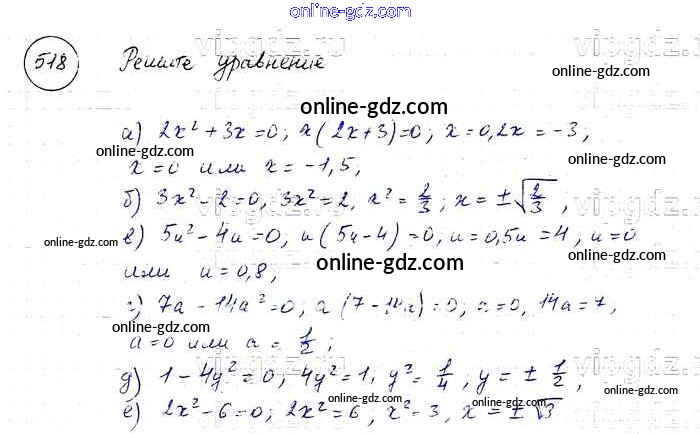 online-gdz.com
518 Решите уравнение
online-gdz.com
online-gdz.com
а) 2x² + 3x = 0; x(2x+3)=0; x=0, 2x = -3,
online-gdz.com online-gdz.com
x=0 или x = -1,5;
б) 3x² - 2 = 0, 3x² = 2, x² = 2/3; x = ±√(2/3),
online-gdz.com
в) 5u² - 4u = 0, u(5u-4) = 0, u=0, 5u = 4, u=0
online-gdz.com online-gdz.com
или u = 0,8,
online-gdz.com
г) 7a - 14a² = 0; a(7-14a) = 0; a=0, 14a = 7,
online-gdz.com online-gdz.com
a=0 или a = 1/2;
д) 1 - 4y² = 0; 4y² = 1, y² = 1/4; y = ± 1/2,
online-gdz.com
е) 2x² - 6 = 0; 2x² = 6, x² - 3, x = ±√3
online-gdz.com online-gdz.com